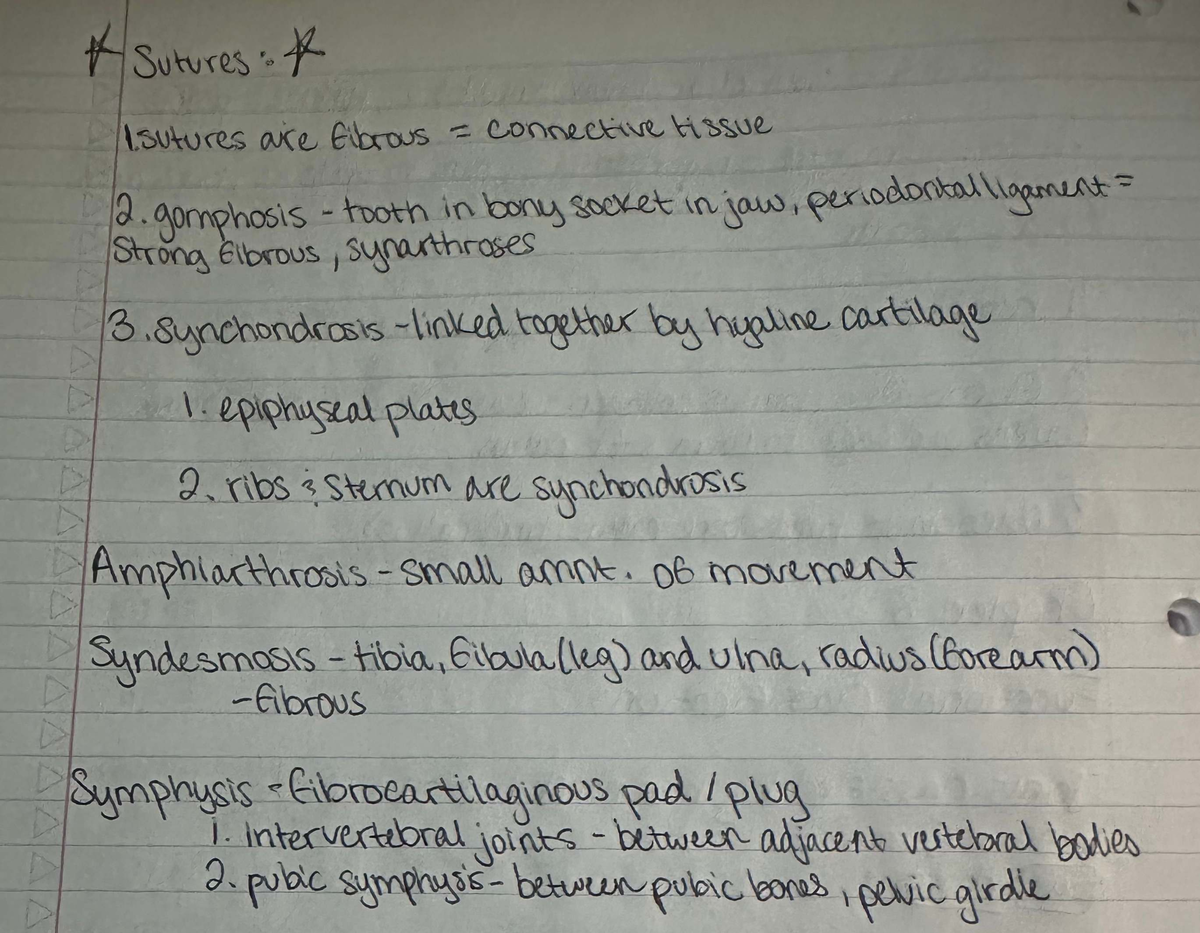 ☆ Sutures: ☆
1. sutures are fibrous = connective tissue
2. gomphosis - tooth in bony socket in jaw, periodontal ligament =
Strong fibrous, synarthroses
3. synchondrosis - linked together by hyaline cartilage
1. epiphyseal plates
2. ribs & sternum are synchondrosis
Amphiarthrosis - small amnt. of movement
Syndesmosis - tibia, fibula (leg) and ulna, radius (forearm)
- fibrous
Symphysis - fibrocartilaginous pad / plug
1. intervertebral joints - between adjacent vertebral bodies
2. pubic symphysis - between pubic bones, pelvic girdle